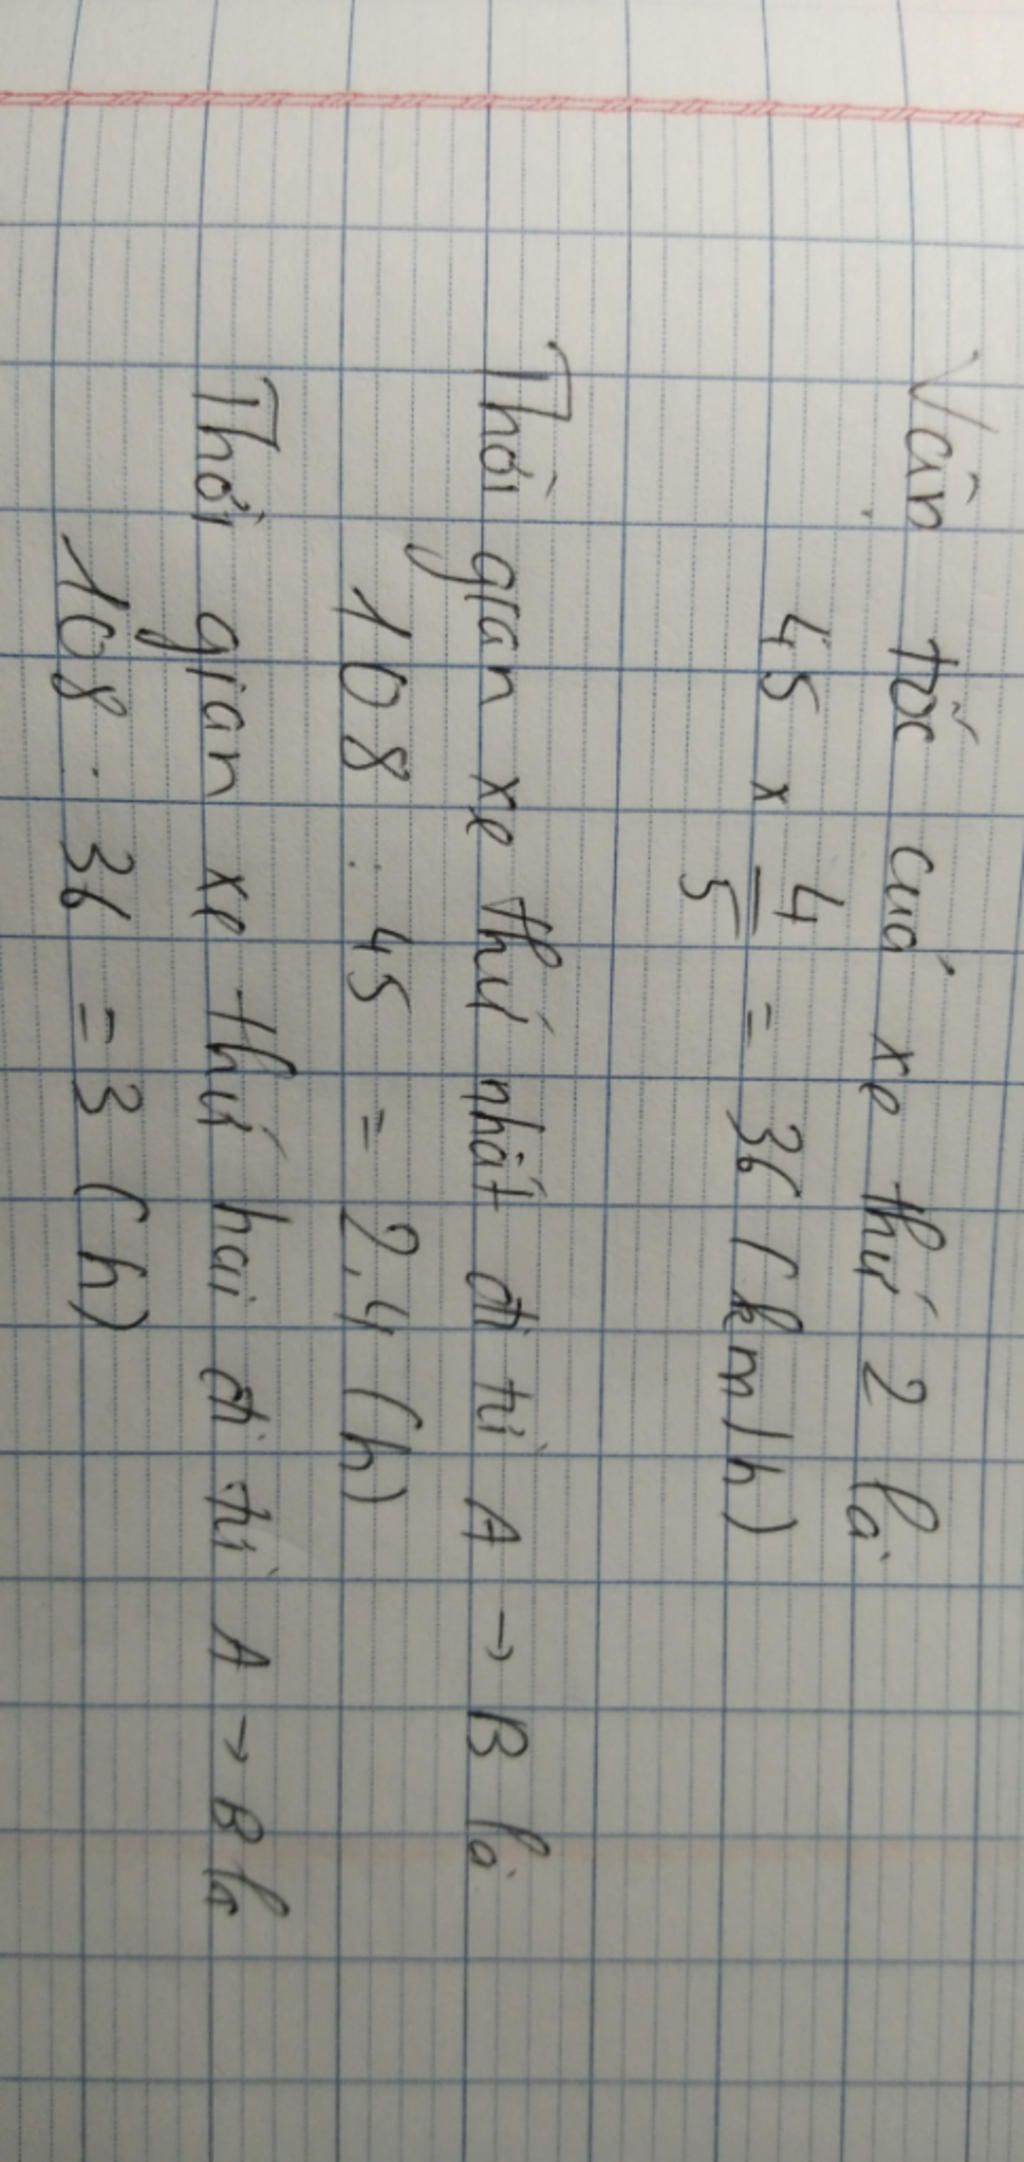 Vận tốc của xe thứ 2 là
45 x 4/5 = 36 (km/h)
Thời gian xe thứ nhất đi từ A → B là
108 : 45 = 2,4 (h)
Thời gian xe thứ hai đi từ A → B là
108 : 36 = 3 (h)